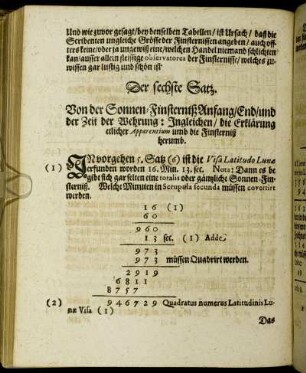 Und wie zuvor gesagt / bey denselben Tabellen / ist Ursach / daß die
Scribenten ungleiche Grösse der Finsternissen angeben / auch offt
es keine / oder ja ungewiß eine / welchen Handel niemand schlichten
kan / ausser allein fleissige observatores der Finsternisse / welches zu
wissen gar lustig und schön ist
Der sechste Satz.
Von der Sonnen-Finsterniß Anfang / End / und
der Zeit der Wehrung: Ingleichen / die Erklärung
etlicher Apparentien umb die Finsterniß
herumb.
(1) IN vorgehen 5. Satz (6) ist die Visa Latitudo Lunæ
erfunden worden 16. Min. 13. sec. Nota: Dann es be-
gibt sich gar selten eine totalis oder gäntzliche Sonnen-Fin-
sterniß. Welche Minuten in Scrupula secunda müssen covertirt
werden.
16 (1)
60
960
13 sec. (1) Adde
973
973 müssen Quadrirt werden.
2919
6811
8757
(2) 946729 Quadratus numerus Latitudinis Lu-
næ Visæ (1)
Das